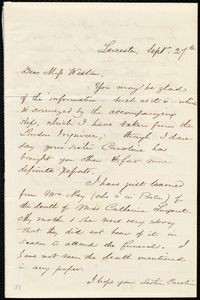 Leicester, Sept. 27th
Dear Miss Weston,
You may be glad
of the information - such as it is - which
is conveyed by the accompanying
slip, which I have taken from the
London Inquirer; though I dare
say your sister Caroline has
brought you then before more
definite reports.
I have just learned
from Mr. May (who is in Boston) of
the death of Miss Catherine Sargent.
My mother & she were very sorry
that they did not hear of it in
season to attend the funeral. I
have not seen the death mentioned
in any paper.
I hope you sister Caroline